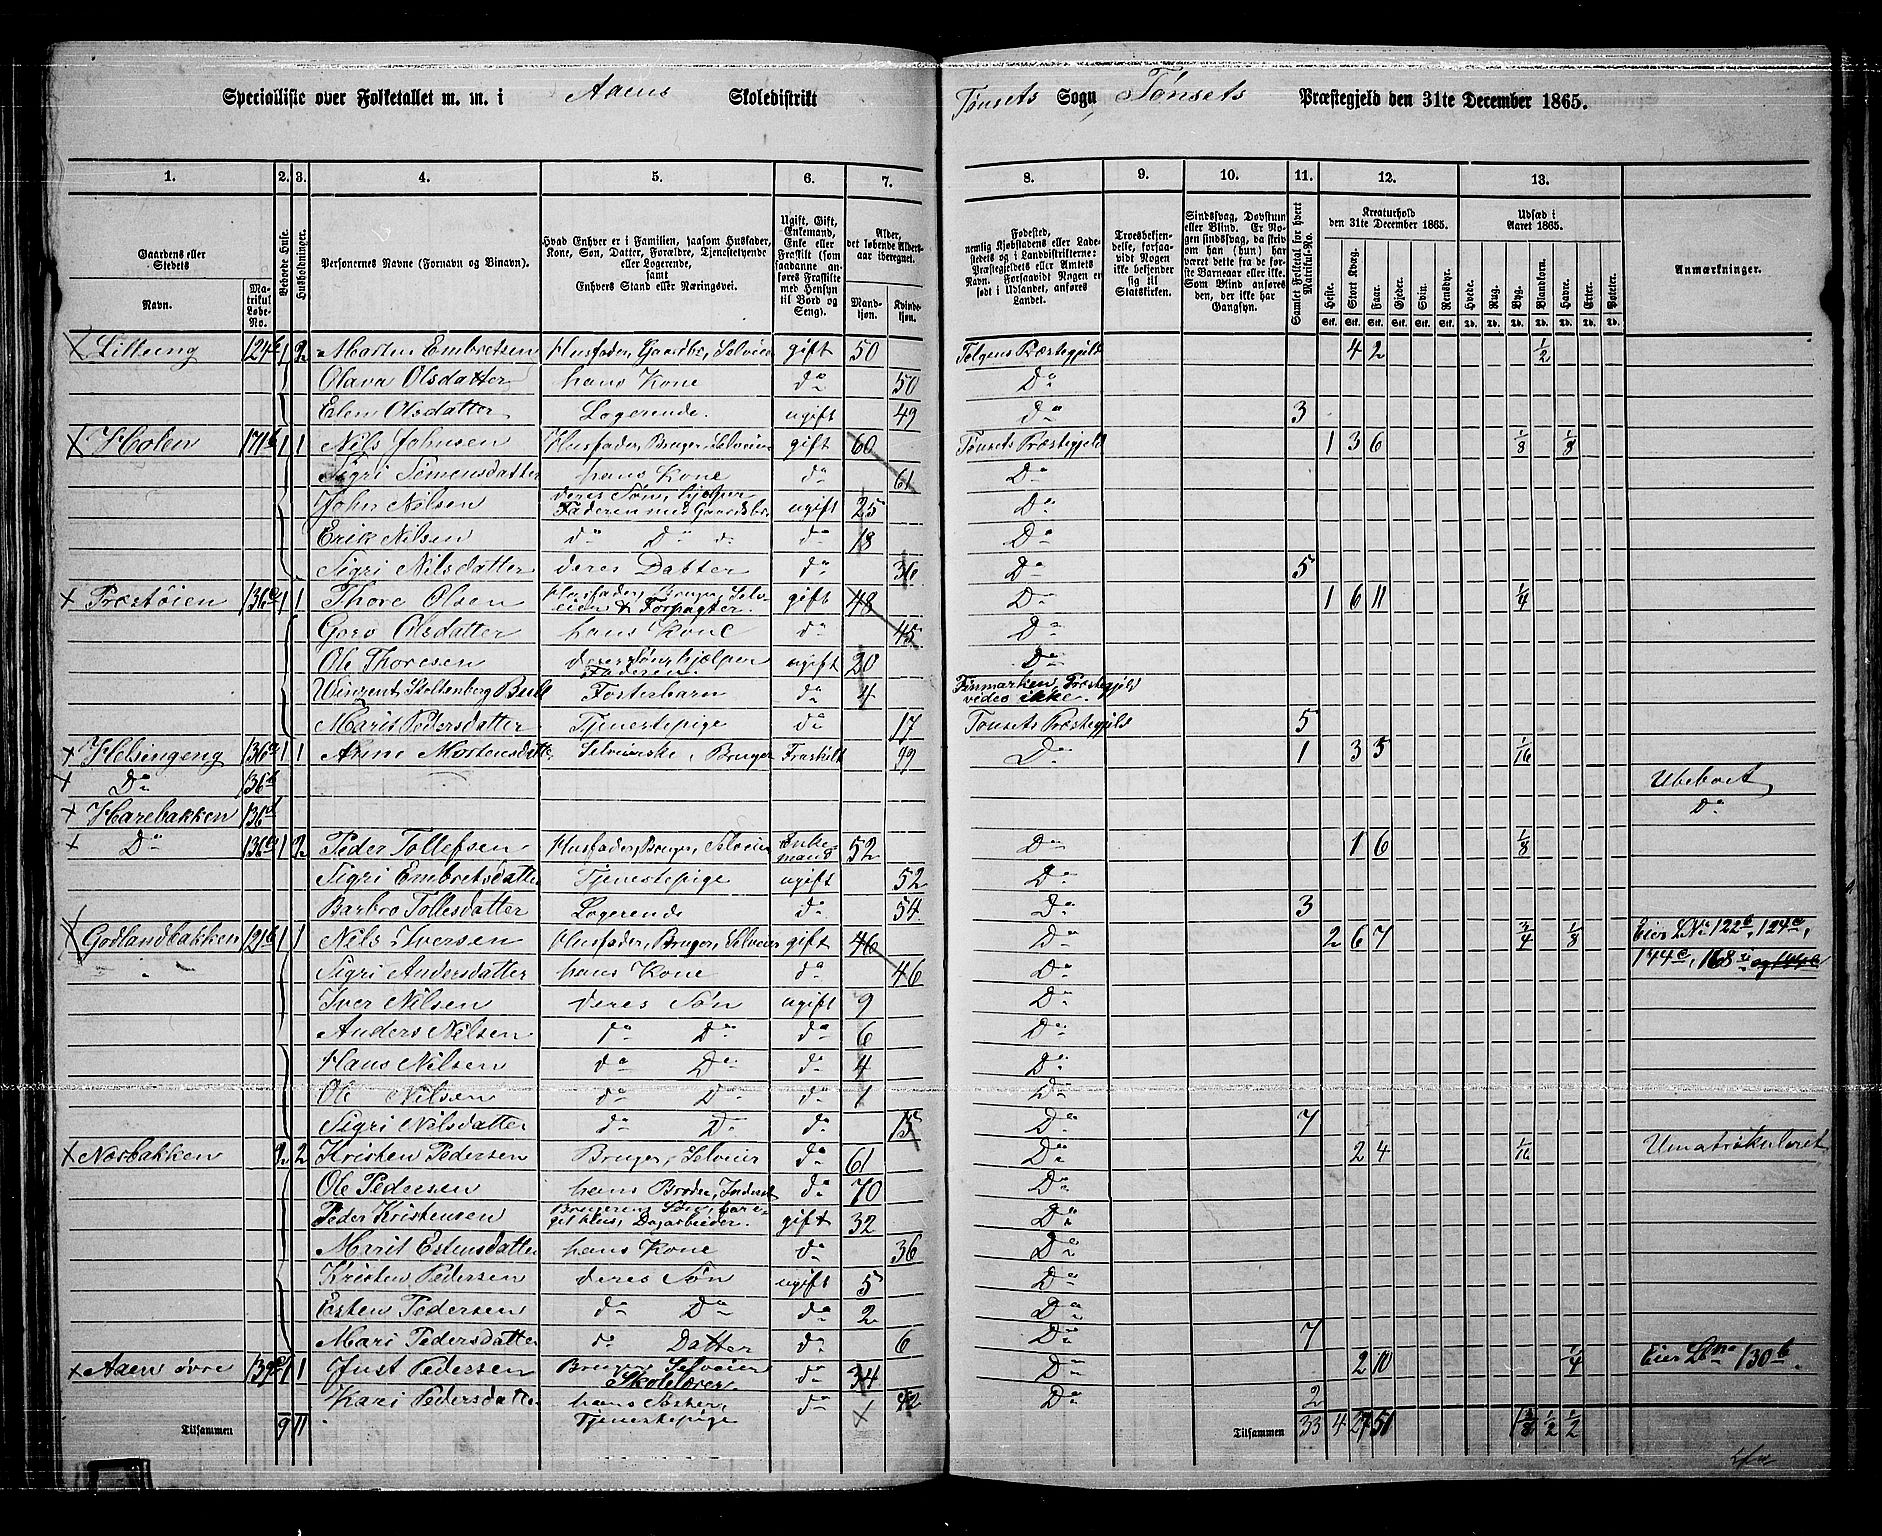 Specialliste over Folketallet m. m. i Aaens Skoledistrikt Tønsets Sogn, Tønsets Præstegjeld den 31te December 1865.
1. 2. 3. 4. 5. 6. 7. 8. 9. 10. 11. 12. 13.
Gaardens eller Stedets
Navn. Matrikul Løbe-No.
Beboede Huse.
Husholdninger.
Personernes Navne (Fornavn og Binavn).
Hvad Enhver er i Familien, saasom Husfader, Kone, Søn, Datter, Forældre, Tjenestetyende eller Logerende, samt Enhvers Stand eller Næringsvei.
Ugift, Gift, Enkemand, Enke eller Fraskilt (som saadanne anføres Fraskilte med Hensyn til Bord og Seng).
Alder, det løbende Aldersaar iberegnet.
Mandkjøn. Kvindekjøn.
Fødested, nemlig Kjøbstadens eller Ladestedets og i Landdistrikterne: Præstegjeldets eller Amtets Navn. Forsaavidt Nogen er født i Udlandet, anføres Landet.
Troesbekjendelse, forsaavidt Nogen ikke bekjender sig til Statskirken.
Sindssvag, Døvstum eller Blind. Er Nogen sindssvag, da skriv om han (hun) har været dette fra de første Barneaar eller ikke. Som Blind anføres den, der ikke har Gangsyn.
Samlet Folketal for hvert Matrikul-No.
Kreaturhold den 31te December 1865.
Heste. Stort Kvæg. Faar. Gjeder. Svin. Rensdyr.
Udsæd i Aaret 1865.
Hvede. Rug. Byg. Blandkorn. Havre. Erter. Poteter.
Anmærkninger.
Stk. Stk. Stk. Stk. Stk. Stk. Td. Td. Td. Td. Td. Td. Td.
124b 1 2 Morten Embretsen Husfader, Gaardbr., Selveier gift 50 Tolgens Præstegjeld 4 2 1/2
Olava Olsdatter hans Kone do 50 Do
Olsdatter Logerende. ugift 49 Do 3
X Holen 171b 1 1 Nils Johnsen Husfader, Bruger, Selveier gift 60 Tønsets Præstegjeld 1 3 6 1/8 1/8
Sigri Simensdatter hans Kone do 61 Do
John Nilsen deres Søn, hjælper Faderen med Gaardsbr. ugift 25 Do
Erik Nilsen do Do do do 18 Do
Sigri Nilsdatter deres Datter do 36 Do 5
x Præstøien 136c 1 1 Thore Olsen Husfader, Bruger, Selveier & Forpagter. gift 48 Do 1 6 11 1/4
Goro Olsdatter hans Kone do 45 Do
Ole Thoresen deres Søn, hjælper Faderen. ugift 20 Do
Winzent Stoltenberg Bull Fosterbarn do 4 Finmarken, Præstegjeld vides ikke.
Marit Pedersdatter Tjenestepige do 17 Tønsets Præstegjeld 5
x Helsingeng 136a 1 1 Anne Mortensdatter Selveierske, Bruger Fraskilt Do 1 3 5 1/16
x Do 136b Ubeboet
x Harebakken 136d Do
x Do 136e 1 2 Peder Tollefsen Husfader, Bruger, Selveier Enkemand 52 Do 1 6 1/8
Sigri Embretsdatter Tjenestepige ugift 52 Do
Barbro Tollesdatter Logerende do 54 Do 3
X Godlandbakken 121b 1 1 Nils Iversen Husfader, Bruger, Selveier gift 46 Do 2 6 7 3/4 1/8 Eier LNr 122b, 124a,
Sigri Andersdatter hans Kone do 46 Do 144c, 168
Iver Nilsen deres Søn ugift 9 Do
Anders Nilsen do Do do 6 Do
Hans Nilsen do Do do 4 Do
Ole Nilsen do Do do 1 Do
Sigri Nilsdatter do Do do 15 Do 7
x Norbakken 2 2 Kristen Pedersen Bruger, Selveier do 61 Do 2 4 1/16 Umatrikuleret
Ole Pedersen hans Broder, Inderst do 70 Do
Peder Kristensen Brugerens Søn, har eget Hus, Dagarbeider. gift 32 Do
Marit Estensdatter hans Kone do 36 Do
Kristen Pedersen deres Søn ugift 5 Do
Esten Pedersen do Do do 2 Do
Mari Pedersdatter do Datter do 6 Do 7
x Aaen øvre 139 1 1 Just Pedersen Bruger, Selveier Skolelærer. do 34 Do 2 10 1/4 Eier Lno 130b.
Kari Pedersdatter hans Søster, Tjenestepige do 42 Do 2
Tilsammen 9 11 Tilsammen 33 4 27 51 1/2 1/2